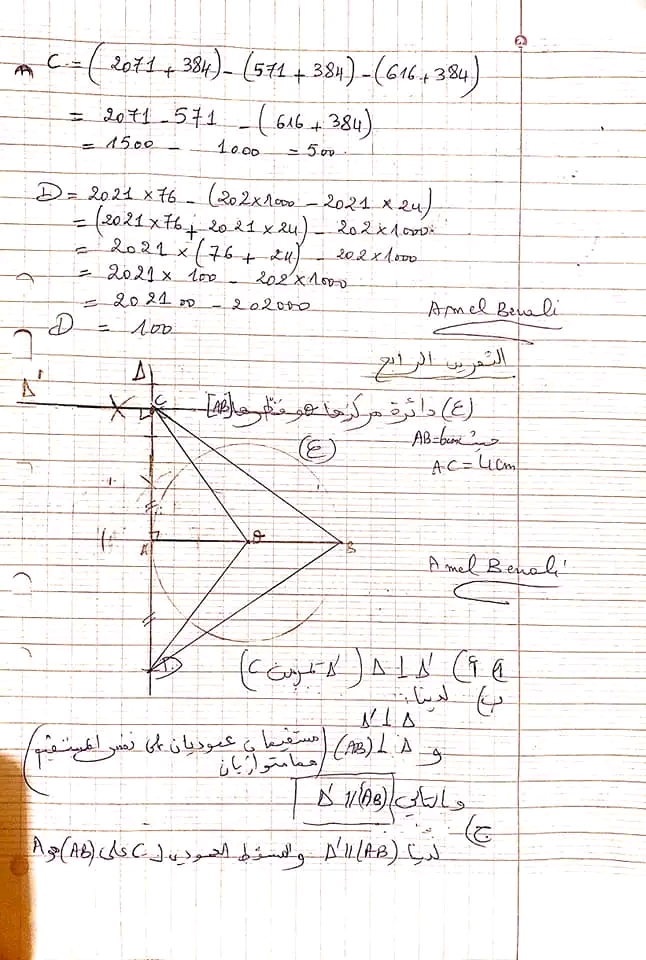 C = (2071 + 384) - (571 + 384) - (616 + 384)
= 2071 - 571 - (616 + 384)
= 1500 - 1000 = 500
D = 2021 × 76 - (202 × 1000 - 2021 × 24)
= (2021 × 76 + 2021 × 24) - 202 × 1000
= 2021 × (76 + 24) - 202 × 1000
= 2021 × 100 - 202 × 1000
= 202100 - 202000
D = 100
Amel Benali
التمرين الرابع
(ع) دائرة مركزها O وقطرها [AB]
حيث AB=6cm
AC = 4cm
Δ'
Δ
C
(ع)
A
O
B
D
Amel Benali
Δ' ⊥ Δ (Δ' تمر من C)
ب) لدينا:
Δ' ⊥ Δ
و Δ ⊥ (AB) (مستقيمان عموديان على نفس المستقيم
هما متوازيان)
وبالتالي Δ' // (AB)
ج)
لدينا Δ' // (AB) والمسقط العمودي لـ C على (AB) هو A